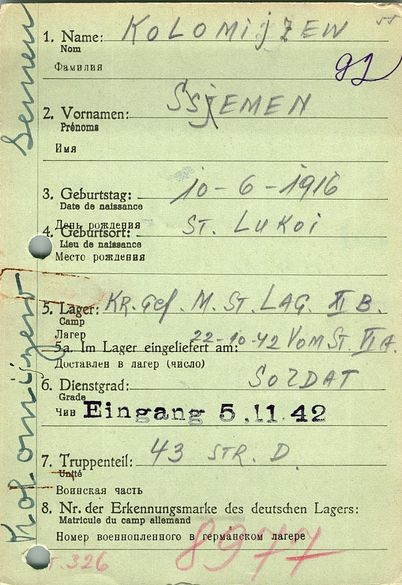 Semen
Kolomijzew
1. Name: KOLOMIJZEW
Nom
Фамилия
92
2. Vornamen: SSJEMEN
Prénoms
Имя
3. Geburtstag: 10-6-1916
Date de naissance
День рождения
4. Geburtsort: ST. LUKOI
Lieu de naissance
Место рождения
5. Lager: KR. Gef. M. ST. LAG. II B.
Camp
Лагерь
5a. Im Lager eingeliefert am: 22-10-42 VOM ST. VI A.
Доставлен в лагер (число)
6. Dienstgrad: SOLDAT
Grade
Чин Eingang 5.11.42
7. Truppenteil: 43 STR. D.
Unité
Воинская часть
8. Nr. der Erkennungsmarke des deutschen Lagers:
Matricule du camp allemand
Номер военнопленного в германском лагере
326 8977